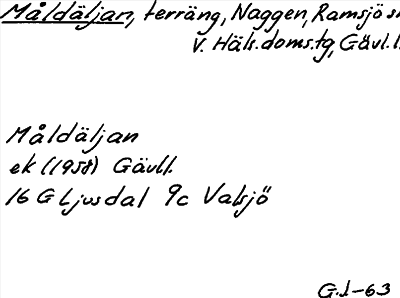 Måldäljan, terräng, Naggen, Ramsjö sn
V. Häls.doms.tg, Gävl.l.
Måldäljan
ek (1958) Gävll.
16 G Ljusdal 9c Valsjö
G.J-63